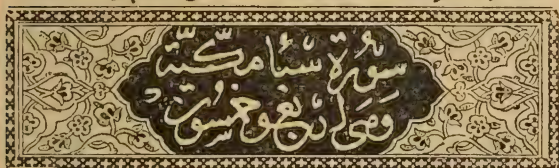 سورة سبأ مكّيّة
وهى اربع وخمسون